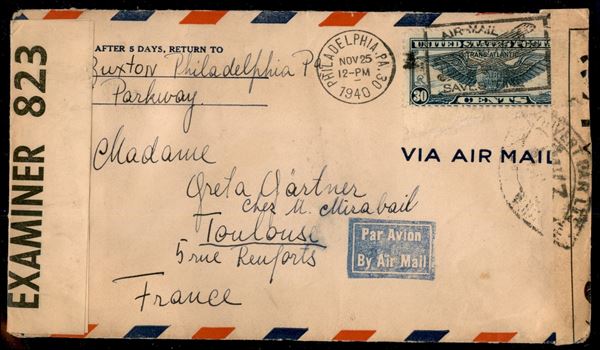 AFTER 5 DAYS, RETURN TO
Buxton Philadelphia Pa
Parkway
PHILADELPHIA, PA. 30
NOV 25
12-PM
1940
AIR MAIL
SAVES
UNITED STATES POSTAGE
TRANS-ATLANTIC
30 CENTS
VIA AIR MAIL
Madame
Greta Gärtner
chez M. Mirabail
Toulouse
5 rue Renforts
France
Par Avion
By Air Mail
EXAMINER 823